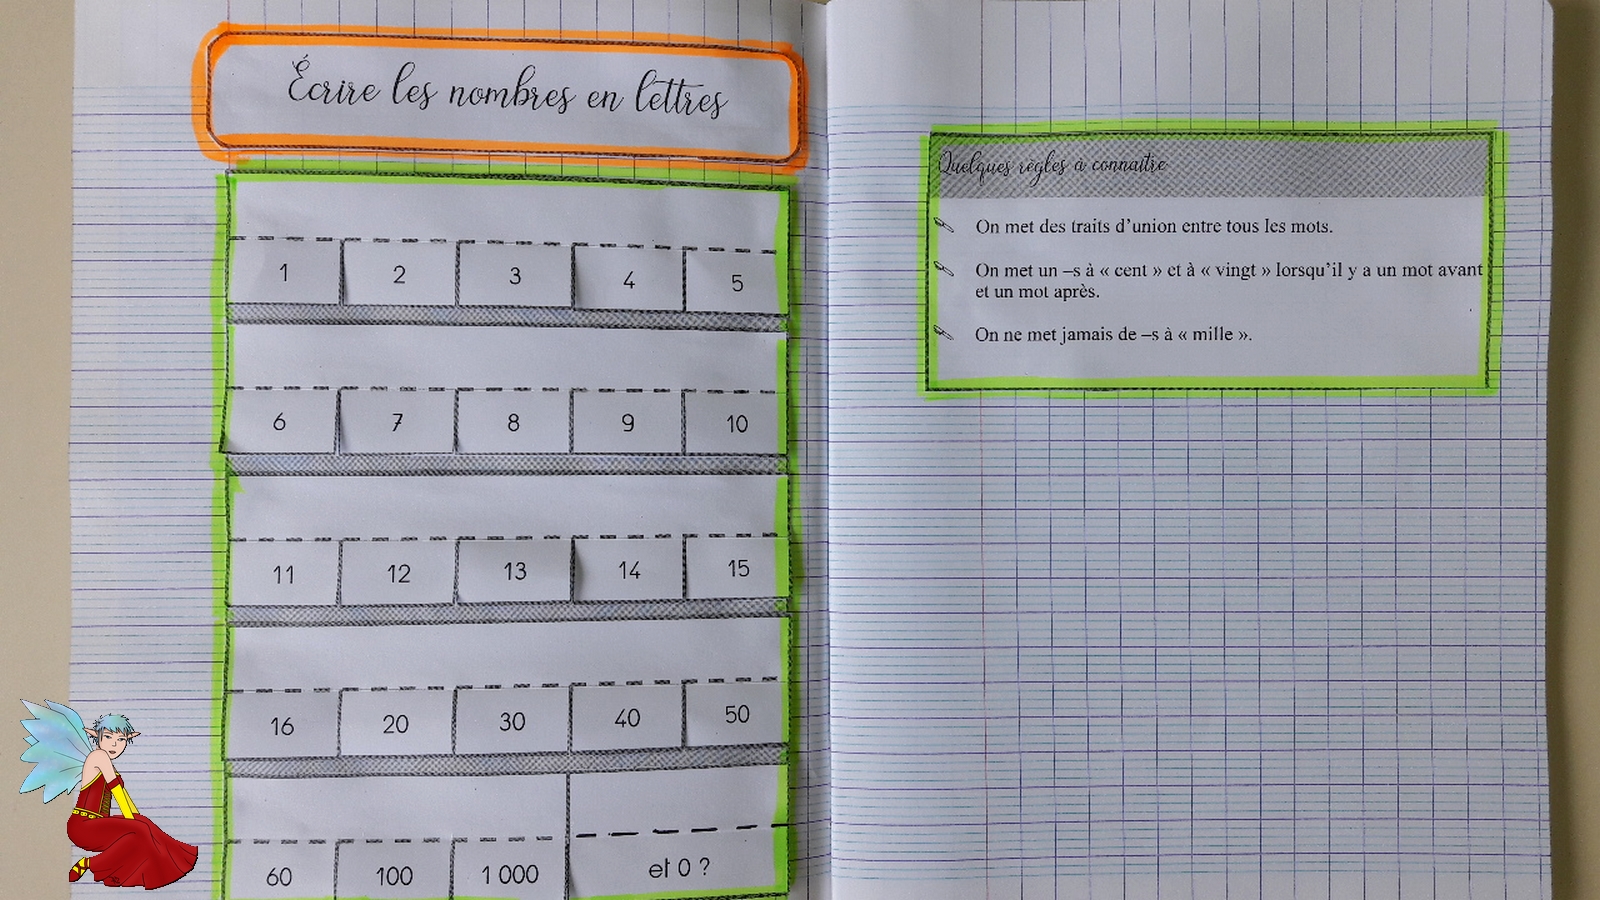 Écrire les nombres en lettres
1 2 3 4 5
6 7 8 9 10
11 12 13 14 15
16 20 30 40 50
60 100 1 000 et 0 ?
Quelques règles à connaître
On met des traits d’union entre tous les mots.
On met un –s à « cent » et à « vingt » lorsqu’il y a un mot avant
et un mot après.
On ne met jamais de –s à « mille ».